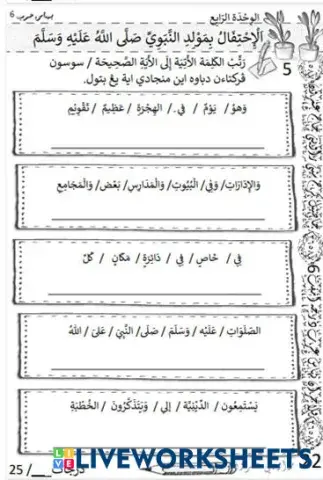 بهاس عرب 6
الوَحْدَةُ الرَّابِع
الْاِحْتِفَالُ بِمَوْلِدِ النَّبَوِيِّ صَلَّى اللهُ عَلَيْهِ وَسَلَّمَ
5 رَتِّبِ الْكَلِمَةَ الْآتِيَةَ إِلَى الْأَيَةِ الصَّحِيحَةِ / سوسون
فركتاءن دباوه اين منجادي اية يڠ بتول.
وَهُوَ / يَوْمُ / فِي / الْهِجْرَةِ / عَظِيمُ / تَقْوِيْمِ
وَالإِدَارَاتِ/ وَفِي/ الْبُيُوتِ/ وَالْمَدَارِسِ/ بَعْضُ/ وَالْمَجَامِعِ
فِي / خَاصٍ / فِي / دَائِرَةٍ / مَكَانٍ / كُلِّ
الصَّلَوَاتِ / عَلَيْهِ / وَسَلَّمَ / صَلَّى/ النَّبِيِّ / عَلَىَ / اللهُ
يَسْتَمِعُونَ / الدِّيْنِيَّة / إلى / وَيَتَذَكَّرُونَ / الخُطْبَةِ
LIVEWORKSHEETS
22
درجات: ___/25